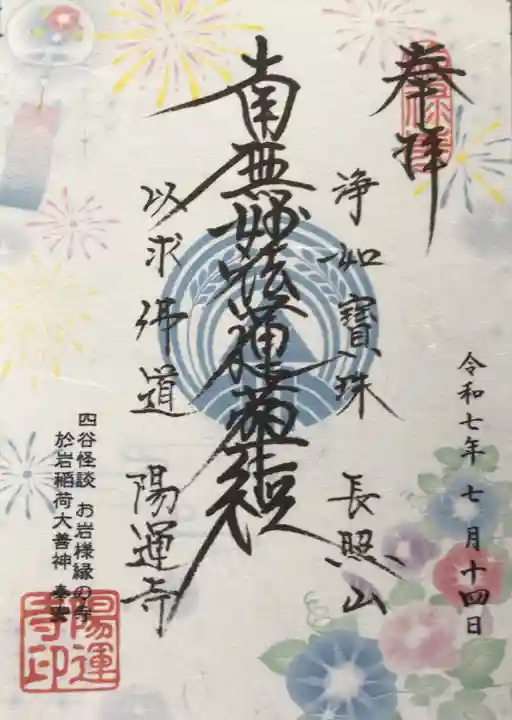 奉拝
浄如寶珠 長照山
南無妙法蓮華経
以求佛道 陽運寺
令和七年 七月十四日
四谷怪談 お岩様縁の寺
於岩稲荷大善神 奉安
陽運
寺印